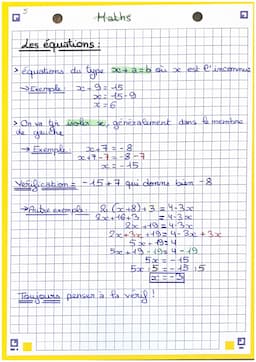 5
Maths
Les équations :
> équations du type x + a = b où x est l'inconnue
→ Exemple : x + 9 = 15
x = 15 - 9
x = 6
> On va isoler x, généralement dans le membre de gauche
→ Exemple : x + 7 = -8
x + 7 - 7 = -8 - 7
x = -15
Vérification = -15 + 7 qui donne bien -8
→ Autre exemple : 2(x+8)+3 = 4-3x
2x+16+3 = 4-3x
2x+19 = 4-3x
2x+3x+19 = 4-3x+3x
5x+19 = 4
5x+19-19 = 4-19
5x = -15
5x:5 = -15:5
x = -3
Toujours penser à la vérif !